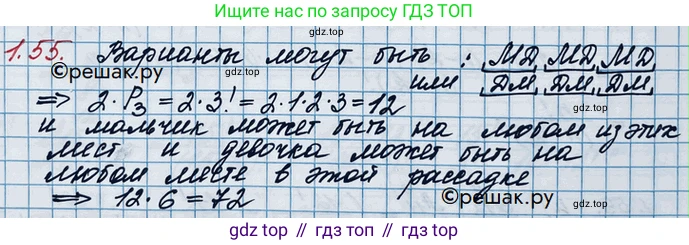 Ищите нас по запросу ГДЗ ТОП
1.55. Варианты могут быть : МД, МД, МД
©решак.ру или ДМ, ДМ, ДМ
=> 2·P₃ = 2·3! = 2·1·2·3 = 12
и мальчик может быть на любом из этих
мест и девочка может быть на
любом месте в этой рассадке
=> 12·6 = 72 ©решак.ру
gdz.top // gdz.top // gdz.top